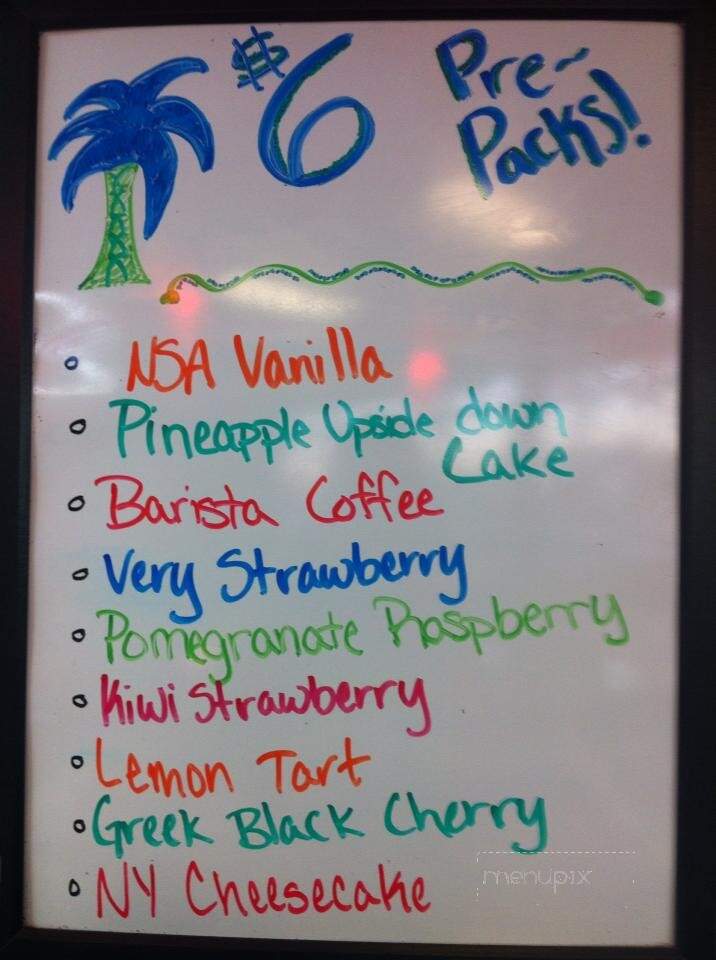 $6 Pre-
Packs!
NSA Vanilla
Pineapple Upside down
Cake
Barista Coffee
Very Strawberry
Pomegranate Raspberry
Kiwi Strawberry
Lemon Tart
Greek Black Cherry
NY Cheesecake
menupix